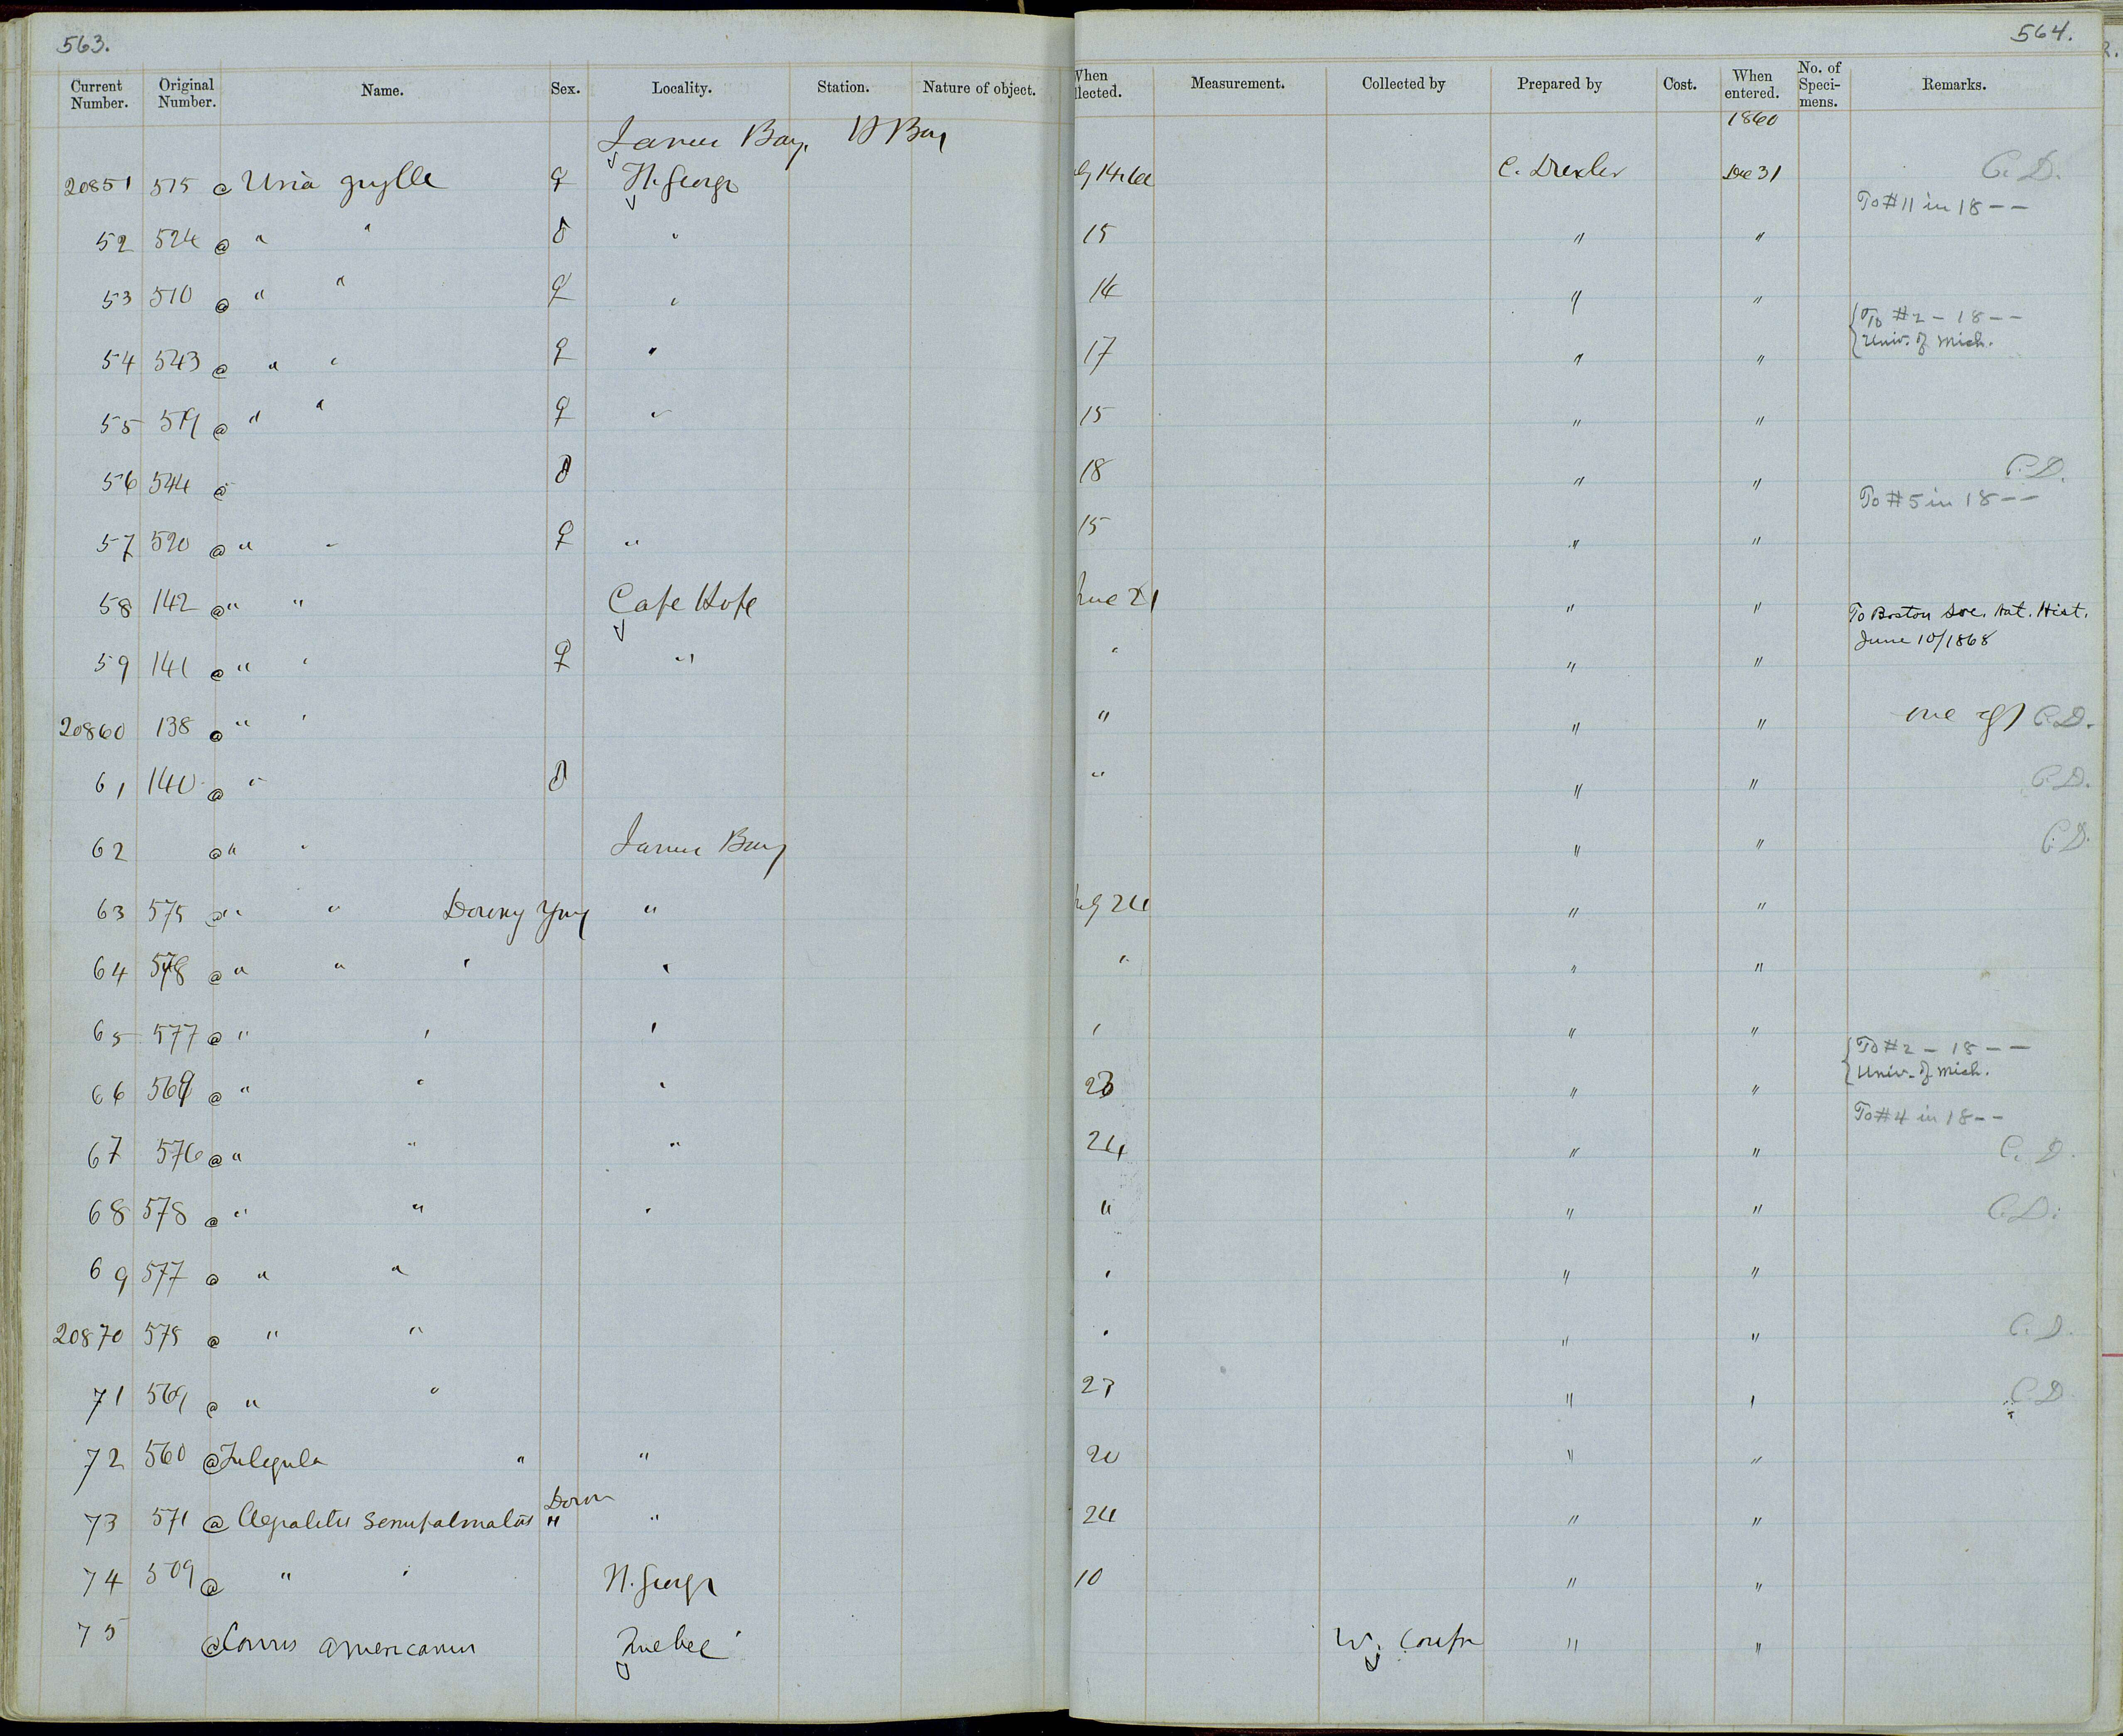 563.
564.
Current Number. Original Number. Name. Sex. Locality. Station. Nature of object. When llected. Measurement. Collected by Prepared by Cost. When entered. No. of Speci- mens. Remarks.
James Bay, H Bay 1860
20851 515 @ Uria grylle ♀ Ft. George ly 14 60 C. Drexler Dec 31 C. D.
To #11 in 18 – –
52 524 @ " " ♂ " 15 " "
53 510 @ " " ♀ " 14 " "
{To #2 – 18 – –
54 543 @ " " ♀ " 17 " " Univ. of Mich.
55 519 @ " " ♀ " 15 " "
56 544 @ ♂ 18 " " C. D.
To #5 in 18 – –
57 520 @ " " ♀ " 15 " "
58 142 @ " " Cape Hope une 21 " " To Boston Soc. Nat. Hist.
June 10/1868
59 141 @ " " ♀ " " " "
20860 138 @ " " " " " one egg C. D.
61 140 @ " ♂ " " " C. D.
62 @ " " James Bay " " C. D.
63 575 @ " " Downy Yng " uly 24 " "
64 578 @ " " " " " " "
65 577 @ " " " " " "
{To #2 – 18 – –
Univ. of Mich.
66 569 @ " " " 23 " "
To #4 in 18 – –
67 576 @ " " " 24 " " C. D.
68 578 @ " " " " " " C. D.
69 577 @ " " " " "
20870 575 @ " " " " " C. D.
71 569 @ " " 23 " " C. D.
72 560 @ Fuligula " " 20 " "
Down
73 571 @ Aegialitis semipalmatus " " 24 " "
74 509 @ " " Ft. George 10 " "
75 @ Corvus americanus Quebec W. Couper " "